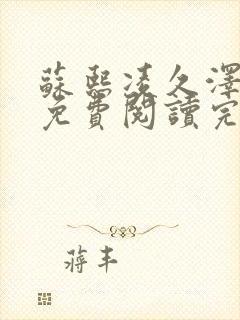 蘇熙凌久澤
免費閱讀完
蔣丰